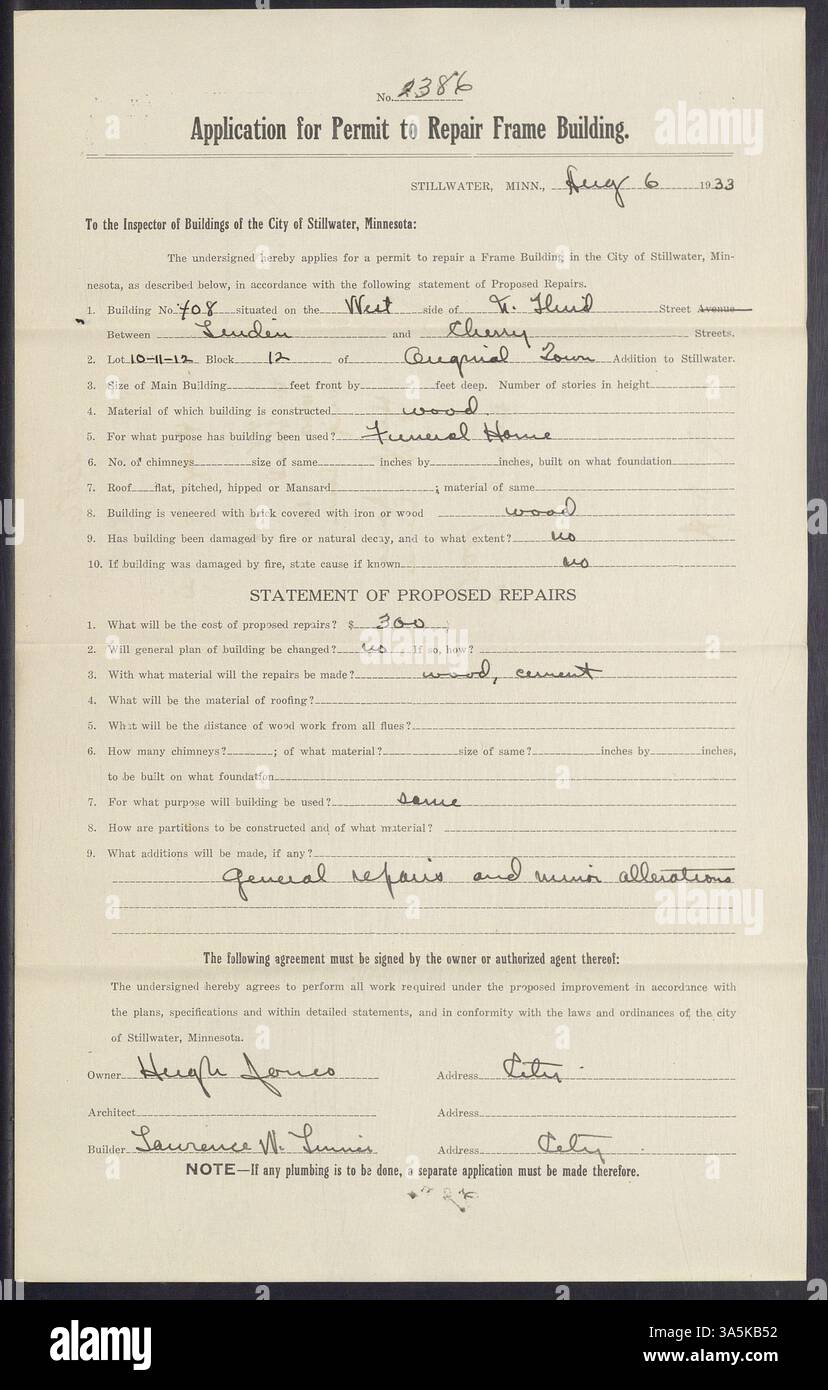 No. 2386
Application for Permit to Repair Frame Building.
STILLWATER, MINN., Aug 6 1933
To the Inspector of Buildings of the City of Stillwater, Minnesota:
The undersigned hereby applies for a permit to repair a Frame Building in the City of Stillwater, Min-
nesota, as described below, in accordance with the following statement of Proposed Repairs.
1. Building No. 408 situated on the West side of N. Third Street Avenue
Between Linden and Cherry Streets.
2. Lot 10-11-12 Block 12 of Town Addition to Stillwater.
3. Size of Main Building feet front by feet deep. Number of stories in height
4. Material of which building is constructed wood.
5. For what purpose has building been used? Funeral Home
6. No. of chimneys size of same inches by inches, built on what foundation
7. Roof flat, pitched, hipped or Mansard ; material of same
8. Building is veneered with brick covered with iron or wood wood
9. Has building been damaged by fire or natural decay, and to what extent? no
10. If building was damaged by fire, state cause if known no
STATEMENT OF PROPOSED REPAIRS
1. What will be the cost of proposed repairs? $ 300
2. Will general plan of building be changed? no . If so, how?
3. With what material will the repairs be made? wood, cement
4. What will be the material of roofing?
5. What will be the distance of wood work from all flues?
6. How many chimneys? ; of what material? size of same? inches by inches,
to be built on what foundation
7. For what purpose will building be used? same
8. How are partitions to be constructed and of what material?
9. What additions will be made, if any?
general repairs and minor allerations
The following agreement must be signed by the owner or authorized agent thereof:
The undersigned hereby agrees to perform all work required under the proposed improvement in accordance with
the plans, specifications and within detailed statements, and in conformity with the laws and ordinances of the city
of Stillwater, Minnesota.
Owner Hugh Jones Address City
Architect Address
Builder Lawrence W. Address City
NOTE—If any plumbing is to be done, a separate application must be made therefore.
alamy
Image ID: 3A5KB52
www.alamy.com